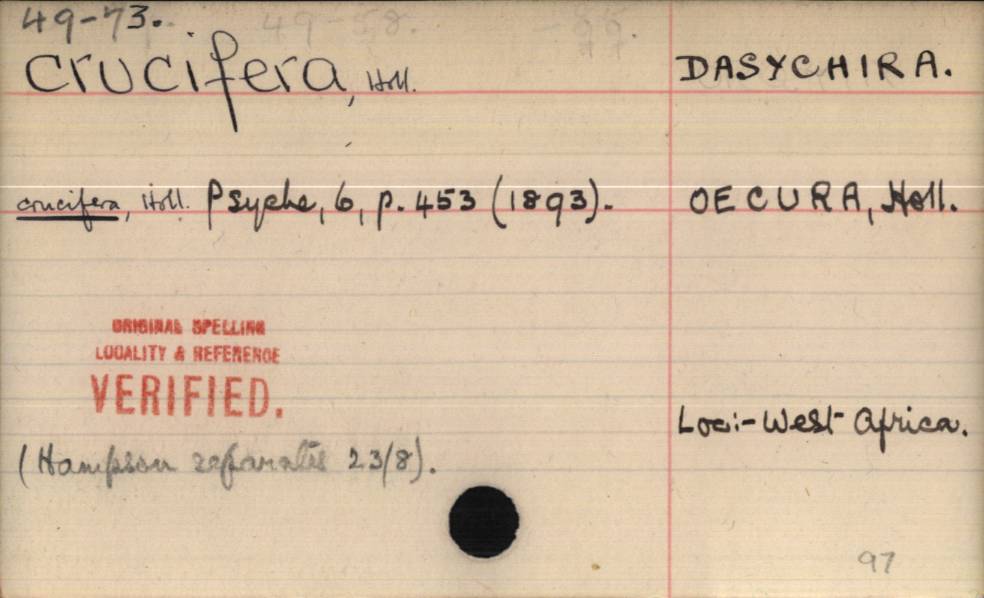 49-73.
crucifera, Holl. DASYCHIRA.
crucifera, Holl. Psyche, 6, p. 453 (1893). OECURA, Holl.
ORIGINAL SPELLING
LOCALITY & REFERENCE
VERIFIED.
Loc:- West Africa.
(Hampson separates 23/8).
97